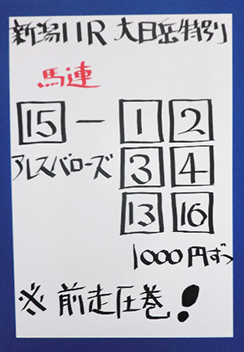 新潟11R 大日岳特別
馬連
15 - 1 2
アレスバローズ 3 4
13 16
1000円ずつ
※ 前走圧巻!